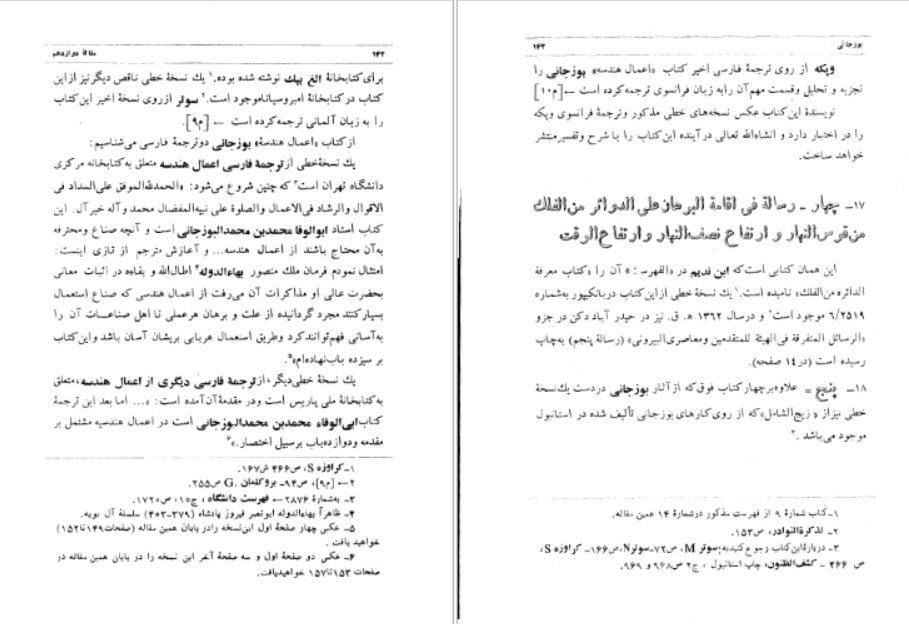 ۱۴۲ مقالهٔ دوازدهم
برای کتابخانهٔ الغ بیك نوشته شده بوده.۱ یك نسخهٔ خطی ناقص دیگر نیز از این
کتاب در کتابخانهٔ امبروسیانا موجود است.۲ سوتر از روی نسخهٔ اخیر این کتاب
را به زبان آلمانی ترجمه کرده است ← [م۹].
از کتاب «اعمال هندسهٔ» بوزجانی دو ترجمهٔ فارسی می‌شناسیم:
یك نسخهٔ خطی از ترجمهٔ فارسی اعمال هندسه متعلق به کتابخانه مرکزی
دانشگاه تهران است۳ که چنین شروع می‌شود: «الحمدلله الموفق علی السداد فی
الاقوال والرشاد فی الاعمال والصلوة علی نبیه المفضال محمد و آله خیر آل. این
کتاب استاد ابوالوفا محمدبن محمد البوزجانی است و آنچه صناع ومحترفه
به‌آن محتاج باشند از اعمال هندسه... و آغازش مترجم از تازی اینست:
امتثال نمودم فرمان ملك منصور بهاءالدوله۴ اطال‌الله بقاءه در اثبات معانی
بحضرت عالی او مذاکرات آن می‌رفت از اعمال هندسی که صناع استعمال
بسیار کنند مجرد گردانیده از علت و برهان هرعملی تا اهل صناعات آن را
به‌آسانی فهم توانند کرد وطریق استعمال هربابی بریشان آسان باشد و این کتاب
بر سیزده باب نهاده‌ام»۵.
یك نسخهٔ خطی دیگر، از ترجمهٔ فارسی دیگری از اعمال هندسه، متعلق
به کتابخانهٔ ملی پاریس است ودر مقدمهٔ آن آمده است: «... اما بعد این ترجمهٔ
کتاب ابی‌الوفاء محمدبن محمد البوزجانی است در اعمال هندسیه مشتمل بر
مقدمه ودوازده باب برسبیل اختصار.»۶
۱ـ کراوزه S، ص۴۶۶ ش۱۶۷.
۲ ← [م۹]، ص۹۴ـ بروکلمان G، ص۲۵۵.
۳ـ به‌شمارهٔ ۲۸۷۶ ← فهرست دانشگاه، ج۱۰، ص۱۷۲۰.
۴ـ ظاهراً بهاءالدوله ابونصر فیروز پادشاه (۳۷۹-۴۰۳) سلسلهٔ آل بویه.
۵ـ عکس چهار صفحهٔ اول این نسخه را در پایان همین مقاله (صفحات ۱۴۹ تا ۱۵۲)
خواهید یافت.
۶ـ عکس دو صفحهٔ اول و سه صفحهٔ آخر این نسخه را در پایان همین مقاله در
صفحات ۱۵۳ تا ۱۵۷ خواهید یافت.
بوزجانی ۱۴۳
وپکه از روی ترجمهٔ فارسی اخیر کتاب «اعمال هندسهٔ» بوزجانی را
تجزیه و تحلیل وقسمت مهم آن را به زبان فرانسوی ترجمه کرده است ←[م۱۰]
نویسندهٔ این کتاب عکس نسخه‌های خطی مذکور وترجمهٔ فرانسوی وپکه
را در اختیار دارد و انشاءالله تعالی در آینده این کتاب را با شرح وتفسیر منتشر
خواهد ساخت.
۱۷ـ چهار ـ رسالة فی اقامة البرهان علی الدوائر من الفلك
من قوس النهار و ارتفاع نصف النهار و ارتفاع الوقت
این همان کتابی است که ابن ندیم در «الفهرست» آن را «کتاب معرفة
الدائره من الفلك» نامیده است.۱ یك نسخهٔ خطی از این کتاب در بانکیپور به شماره
۶/۲۵۱۹ موجود است۲ و درسال ۱۳۶۲ ه‍. ق. نیز در حیدر آباد دکن در جزو
«الرسائل المتفرقة فی الهیئة للمتقدمین ومعاصری البیرونی» (رسالهٔ پنجم) به چاپ
رسیده است (در ۱۴ صفحه).
۱۸ـ پنج ـ علاوه بر چهار کتاب فوق که از آثار بوزجانی دردست یك نسخهٔ
خطی نیز از «زیج الشامل» که از روی کارهای بوزجانی تألیف شده در استانبول
موجود می‌باشد.۳
۱ـ کتاب شمارهٔ ۹ از فهرست مذکور در شمارهٔ ۱۴ همین مقاله.
۲ـ تذکرة النوادر، ص۱۵۳.
۳ـ دربارهٔ این کتاب رجوع کنید به: سوتر M، ص۷۲ـ سوتر N، ص۱۶۶ـ کراوزه S،
ص ۴۶۶ ـ کشف الظنون، چاپ استانبول، ج۲ ص۹۶۸ و ۹۶۹.